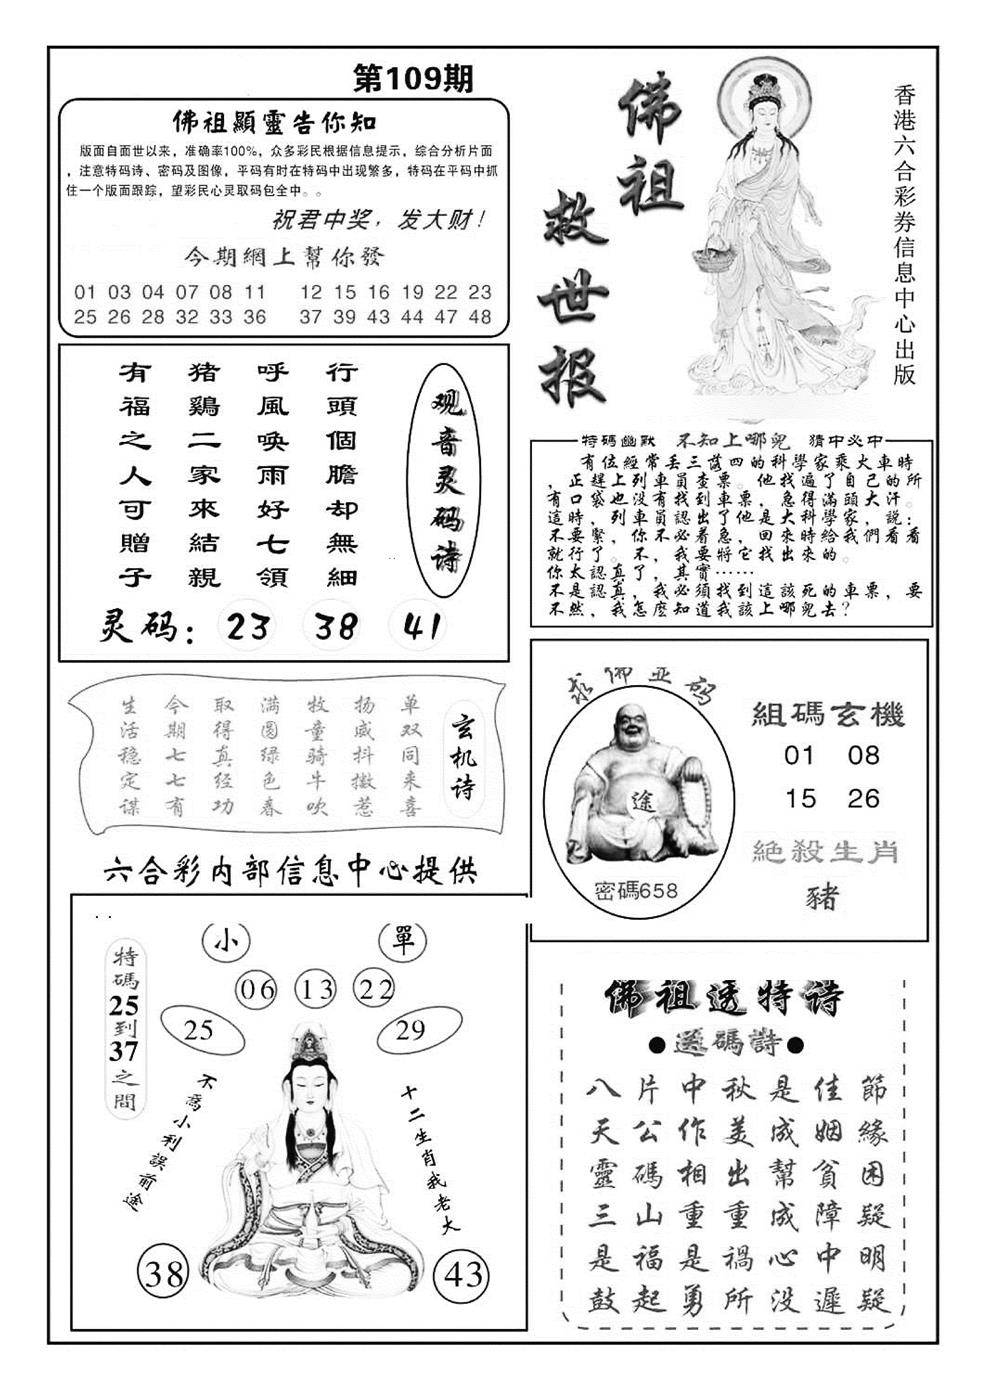 第109期
佛祖顯靈告你知
版面自面世以来，准确率100%，众多彩民根据信息提示，综合分析片面
，注意特码诗、密码及图像，平码有时在特码中出现繁多，特码在平码中抓
住一个版面跟踪，望彩民心灵取码包全中。。
祝君中奖，发大财！
今期網上幫你發
01 03 04 07 08 11 12 15 16 19 22 23
25 26 28 32 33 36 37 39 43 44 47 48
佛祖
救世报
香港六合彩券信息中心出版
观音灵码诗
行頭個膽却無細
呼風喚雨好七領
猪鷄二家來結親
有福之人可贈子
灵码：23 38 41
特碼幽默 不知上哪兒 猜中必中
有位經常丢三落四的科學家乘火車時
，正趕上列車員查票。他找遍了自己的所
有口袋也没有找到車票，急得滿頭大汗。
這時，列車員認出了他是大科學家，説：
不要緊，你不必着急，回來時給我們看看
就行了。不，我要將它找出來的。
你太認真了，其實……
不是認真，我必須找到這該死的車票，要
不然，我怎麽知道我該上哪兒去？
玄机诗
单双同来喜
扬威抖擞惹
牧童骑牛吹
满园绿色春
取得真经功
今期七七有
生活稳定谋
六合彩内部信息中心提供
求佛亚码
途
密碼658
組碼玄機
01 08
15 26
絶殺生肖
豬
小 單
06 13 22
25 29
特碼25到37之間
不爲小利誤前途
十二生肖我老大
38 43
佛祖透特诗
●送碼詩●
八片中秋是佳節
天公作美成姻緣
靈碼相出幫貧困
三山重重成障疑
是福是禍心中明
鼓起勇所没遲疑